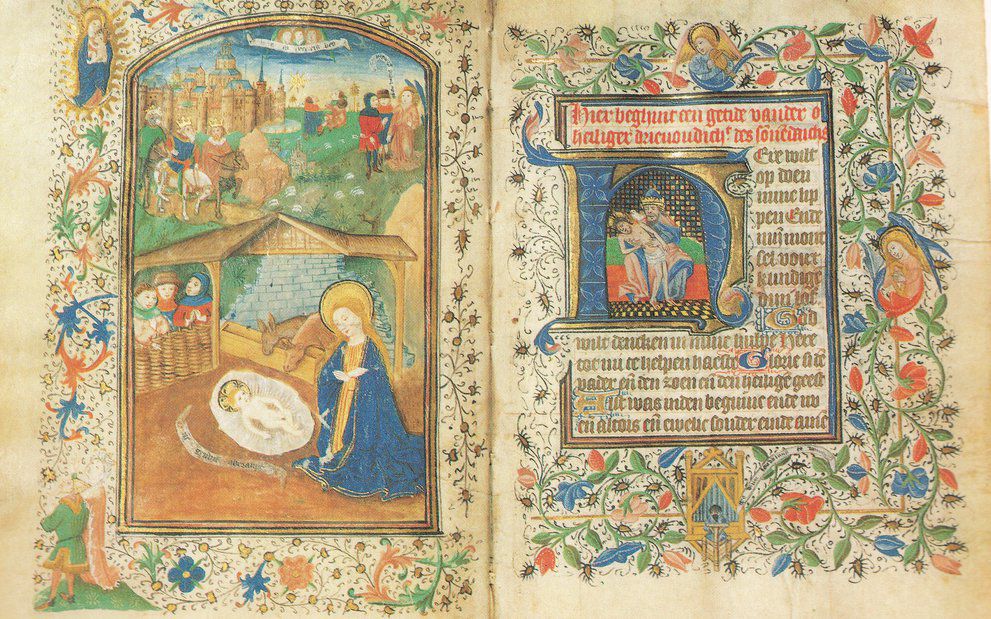 Hier beghint een getide vander
heiliger drievoudich des sonēdaechs
HEre wilt
op doen
mine lip
pen Ende
mijn mont
sel voirt
kundige
dinē lof
God
wilt dencken in mine hulpe Here
tot mi te helpen haeste Glorie si dē
vader eñ den zoen eñ den heilige geest
Alst was inden beginne ende nv
eñ altois eñ ewelic sonder einde amē